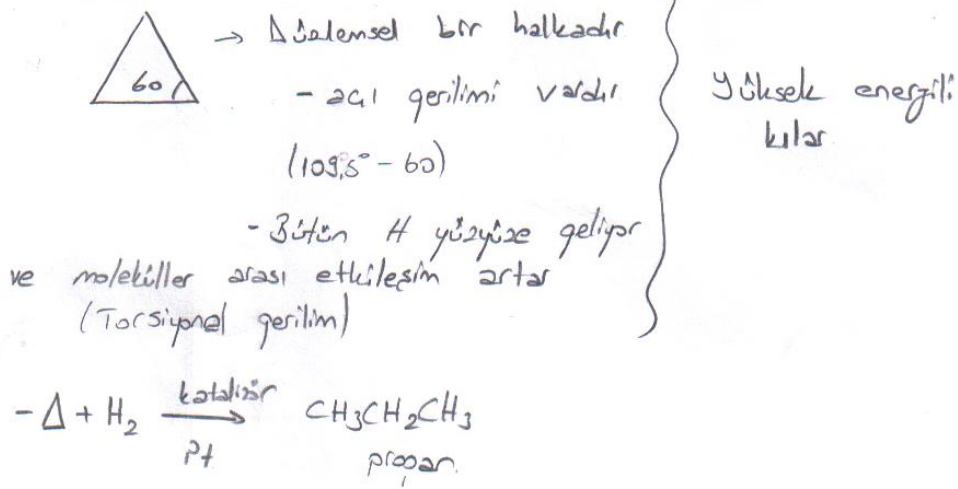 60 → Düzlemsel bir halkadır
- açı gerilimi vardır
(109,5° - 60)
- Bütün H yüzyüze geliyor
ve moleküller arası etkileşim artar
(Torsiyonel gerilim)
Yüksek enerjili
kılar
- Δ + H₂ katalizör → Pt CH₃CH₂CH₃
propan